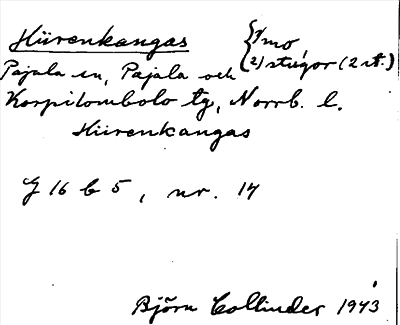 Hiirenkangas { 1) mo
2) stugor (2 st.)
Pajala sn, Pajala och
Korpilombolo tg, Norrb. l.
Hiirenkangas
G 16 b 5, nr. 14
Björn Collinder 1943